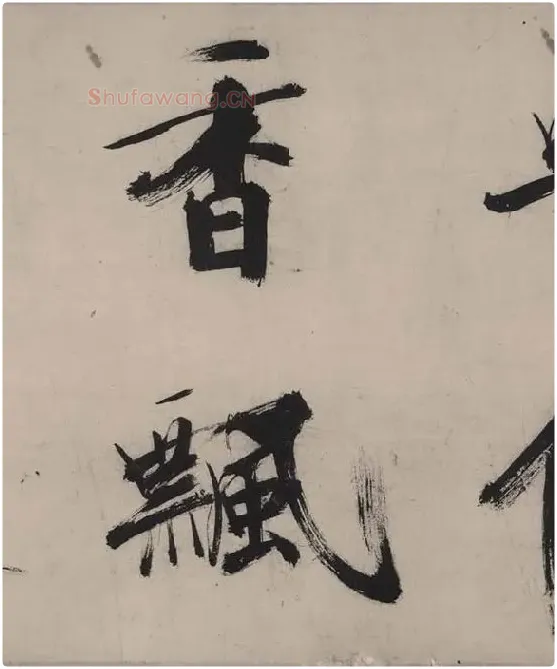 香飄
Shufawang.CN